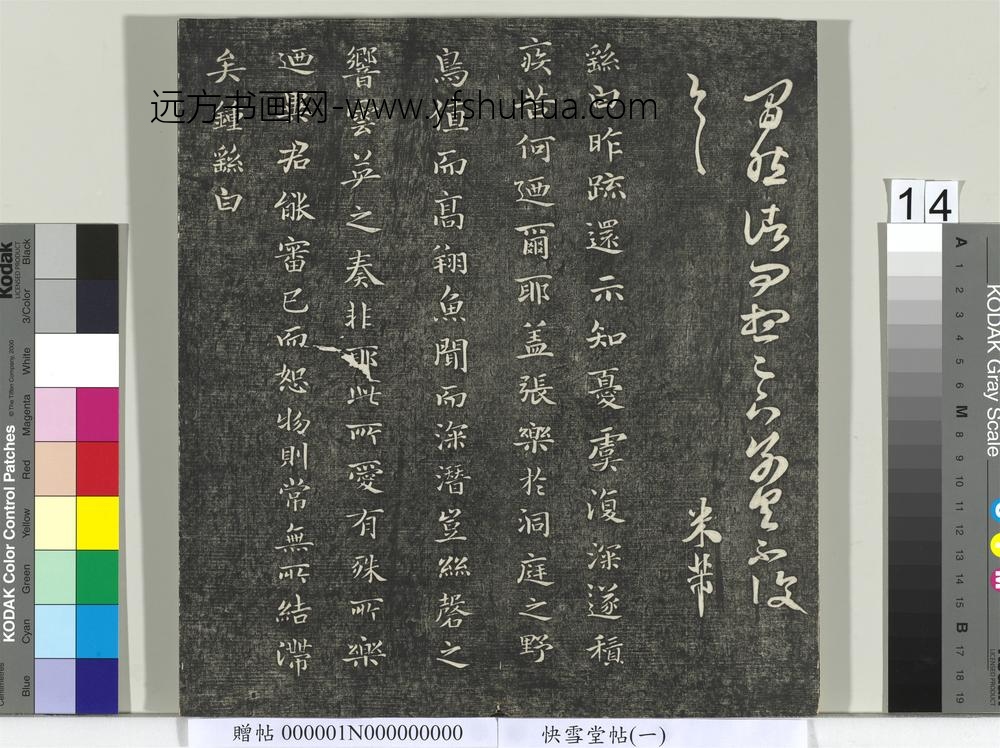 不復
米芾
繇白昨疏還示知憂虞復深遂積
疾苦何迺爾耶蓋張樂於洞庭之野
鳥值而高翔魚聞而深潛豈絲磬之
響雲英之奏非耶此所愛有殊所樂
迺異君能審己而恕物則常無所結滯
矣鍾繇白
远方书画网-www.yfshuhua.com
14
贈帖 000001N000000000
快雪堂帖(一)
Kodak
LICENSED PRODUCT
KODAK Color Control Patches
© The Tiffen Company, 2000
Centimetres
Blue Cyan Green Yellow Red Magenta White 3/Color Black
KODAK Gray Scale
A 1 2 3 4 5 6 M 8 9 10 11 12 13 14 15 B 17 18 19